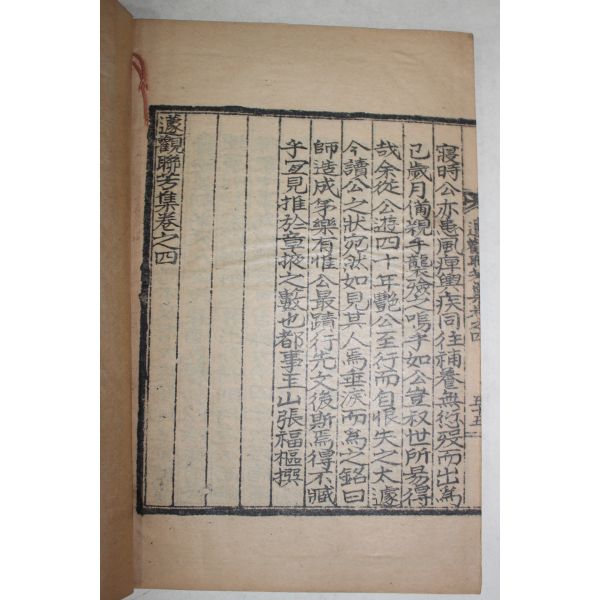 寢時公亦患風痺輿疾同住補養無衍殁而出爲
已歲月備親手襲殮之嗚乎如公豈叔世所易得
哉余從公遊四十年艷公至行而自恨失之太遽
今讀公之狀宛然如見其人焉垂涕而爲之銘曰
師造成孝樂有惟公最蹟行先文後斯焉得不臧
乎宜見推於章掖之藪也都事玉山張福樞撰
蘧觀聯芳集卷之四
蘧觀聯芳集卷之四 五十五